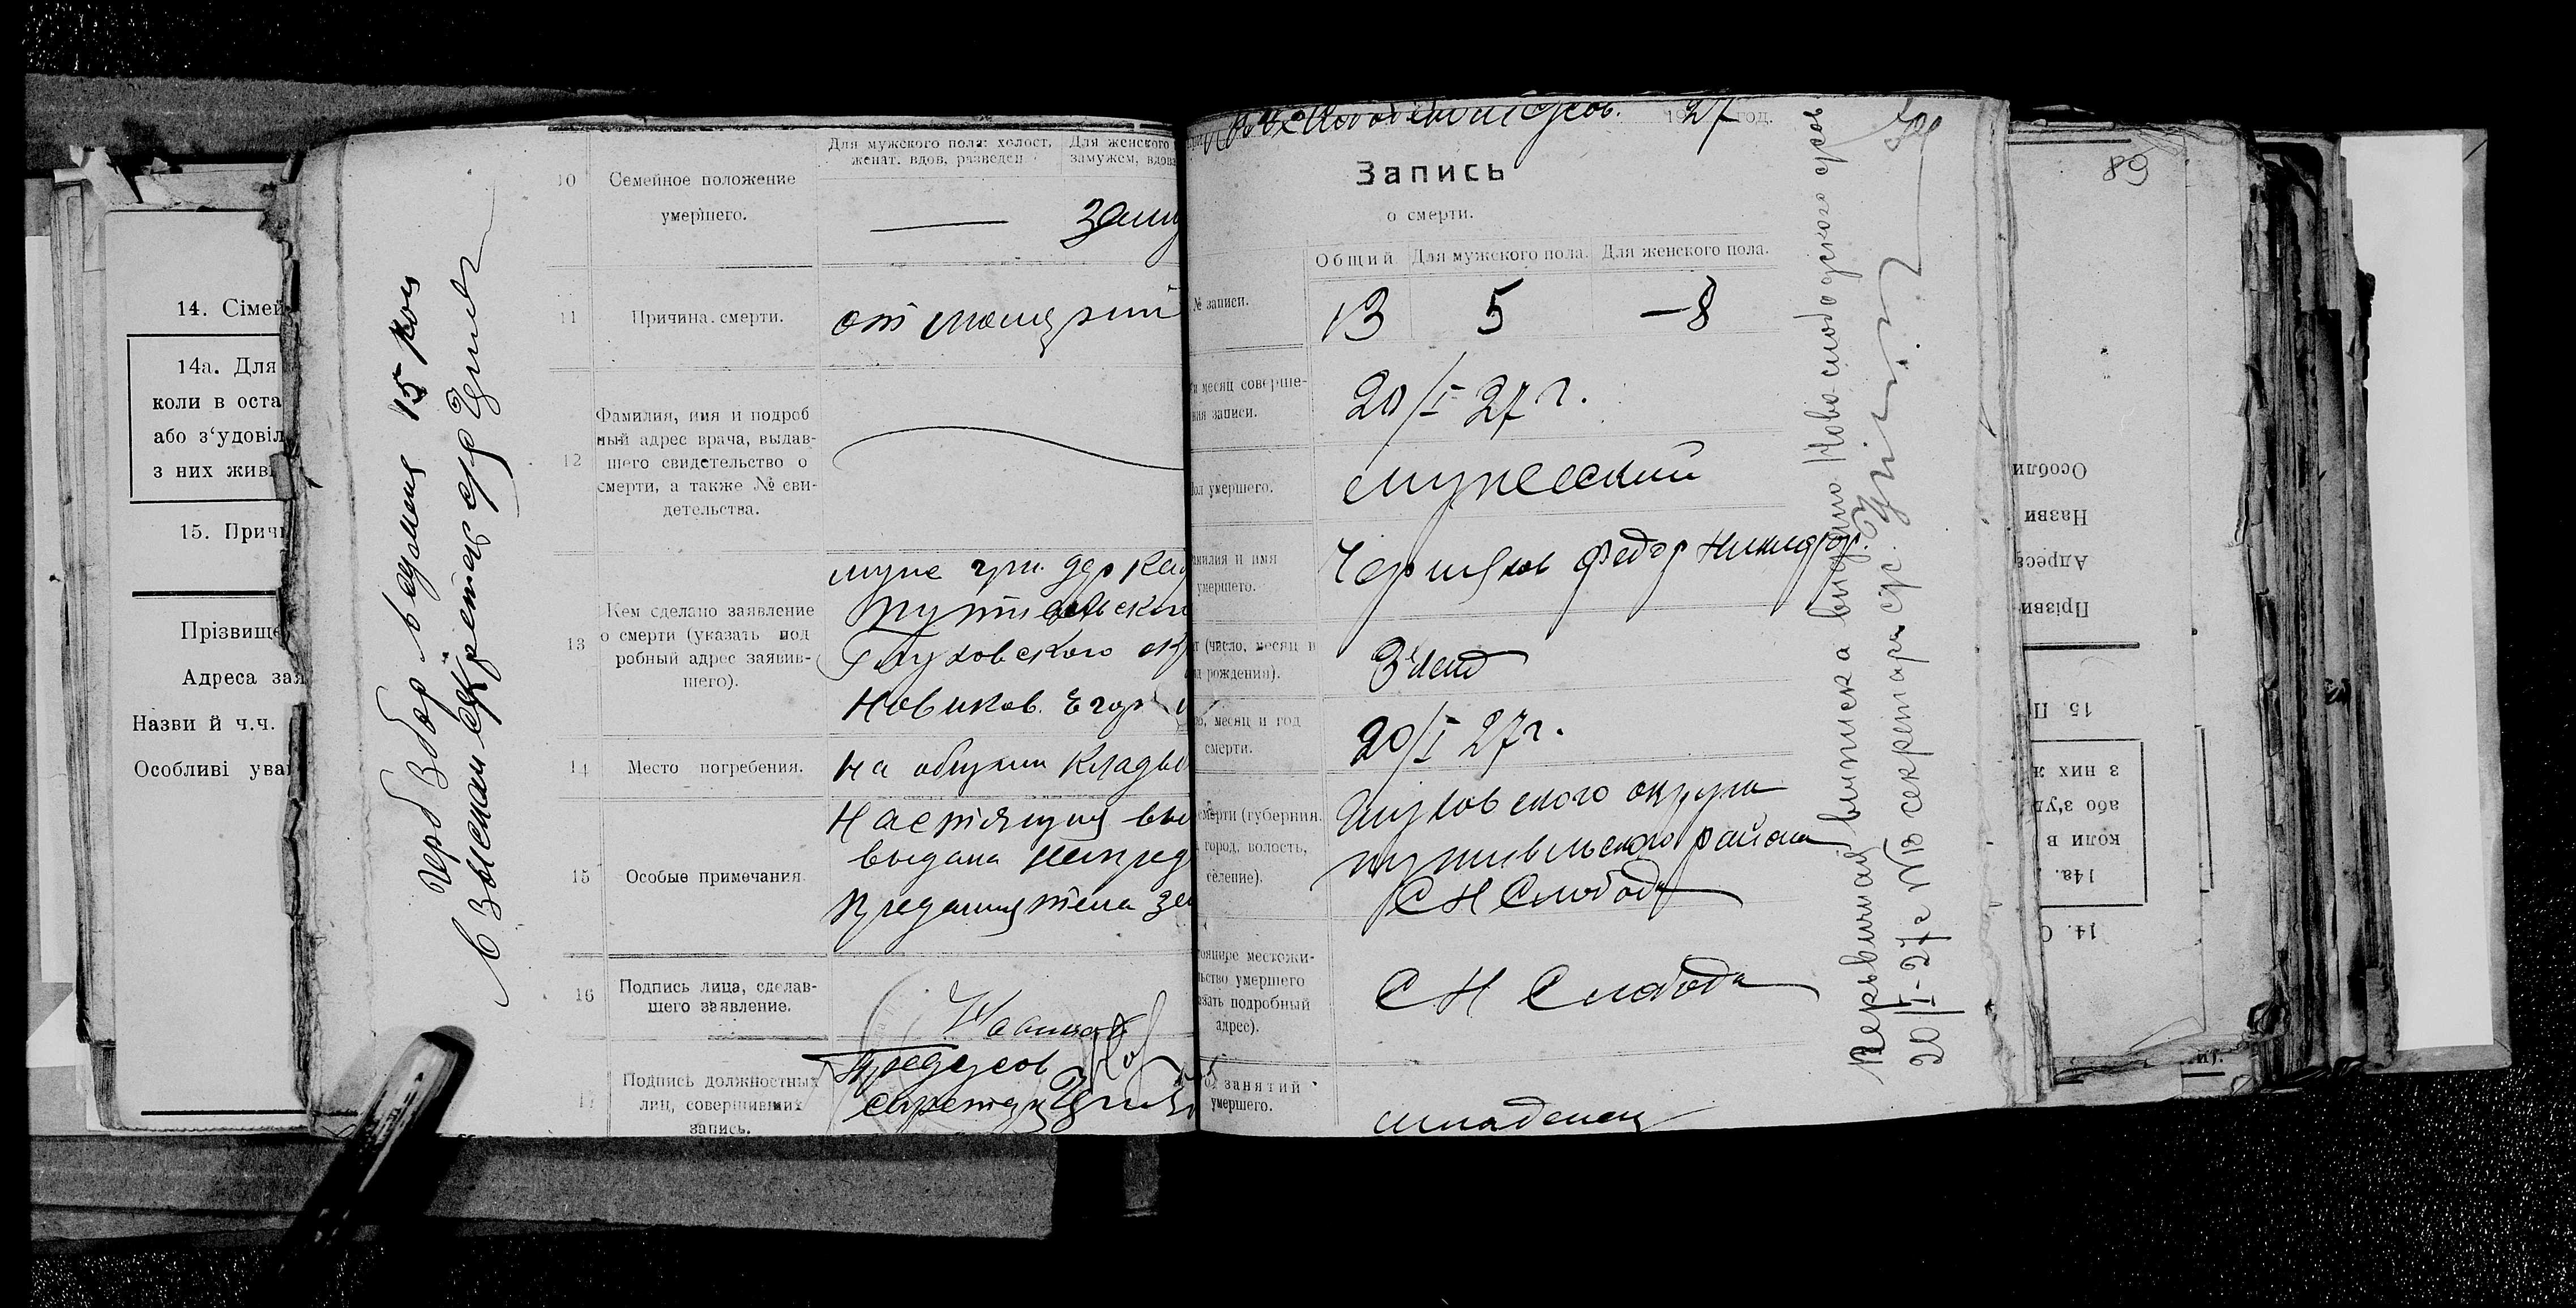 14. Сімей
14а. Для
коли в оста
або з'удовіл
з них живі
15. Причи
Прізвище
Адреса зая
Назви й ч.ч.
Особливі ува
Герб Збор в сумме 15 коп
Взыскан секретарь с/р
10 Семейное положение умершего.
Для мужского пола: холост, женат. вдов, разведен
Для женского замужем, вдова
— заму
11 Причина смерти.
от
12 Фамилия, имя и подробный адрес врача, выдавшего свидетельство о смерти, а также № свидетельства.
13 Кем сделано заявление о смерти (указать подробный адрес заявившего).
муж гр. дер
Путивльского
Глуховского ок
Новиков Егор
14 Место погребения.
На общем кладб
15 Особые примечания.
Настоящая вы
выдана
предания тела зе
16 Подпись лица, сделавшего заявление.
Новиков
17 Подпись должностных лиц, совершивших запись.
Предсов
секретарь
1927 год.
Запись
о смерти.
Общий Для мужского пола. Для женского пола.
№ записи.
13 5 – 8
и месяц соверше-
ния записи.
20/I 27 г.
Пол умершего.
мужеский
амилия и имя
умершего.
Федор Никифор.
т (число, месяц и
д рождения).
3 лет
о, месяц и год
смерти.
20/I 27 г.
смерти (губерния,
город, волость,
селение).
Глуховского округа
путивльского района
С Н Слобода
тоянное местожи-
льство умершего
азать подробный
адрес).
С Н Слобода
од занятий
умершего.
младенец
Первичная выписка а видано Ново-слободского с/сов.
20/I-27 г № 13 секретарь с/р.
89
14. С
14а.
коли в
або з'уд
з них ж
15. П
Прізви
Адреса
Назви
Особли